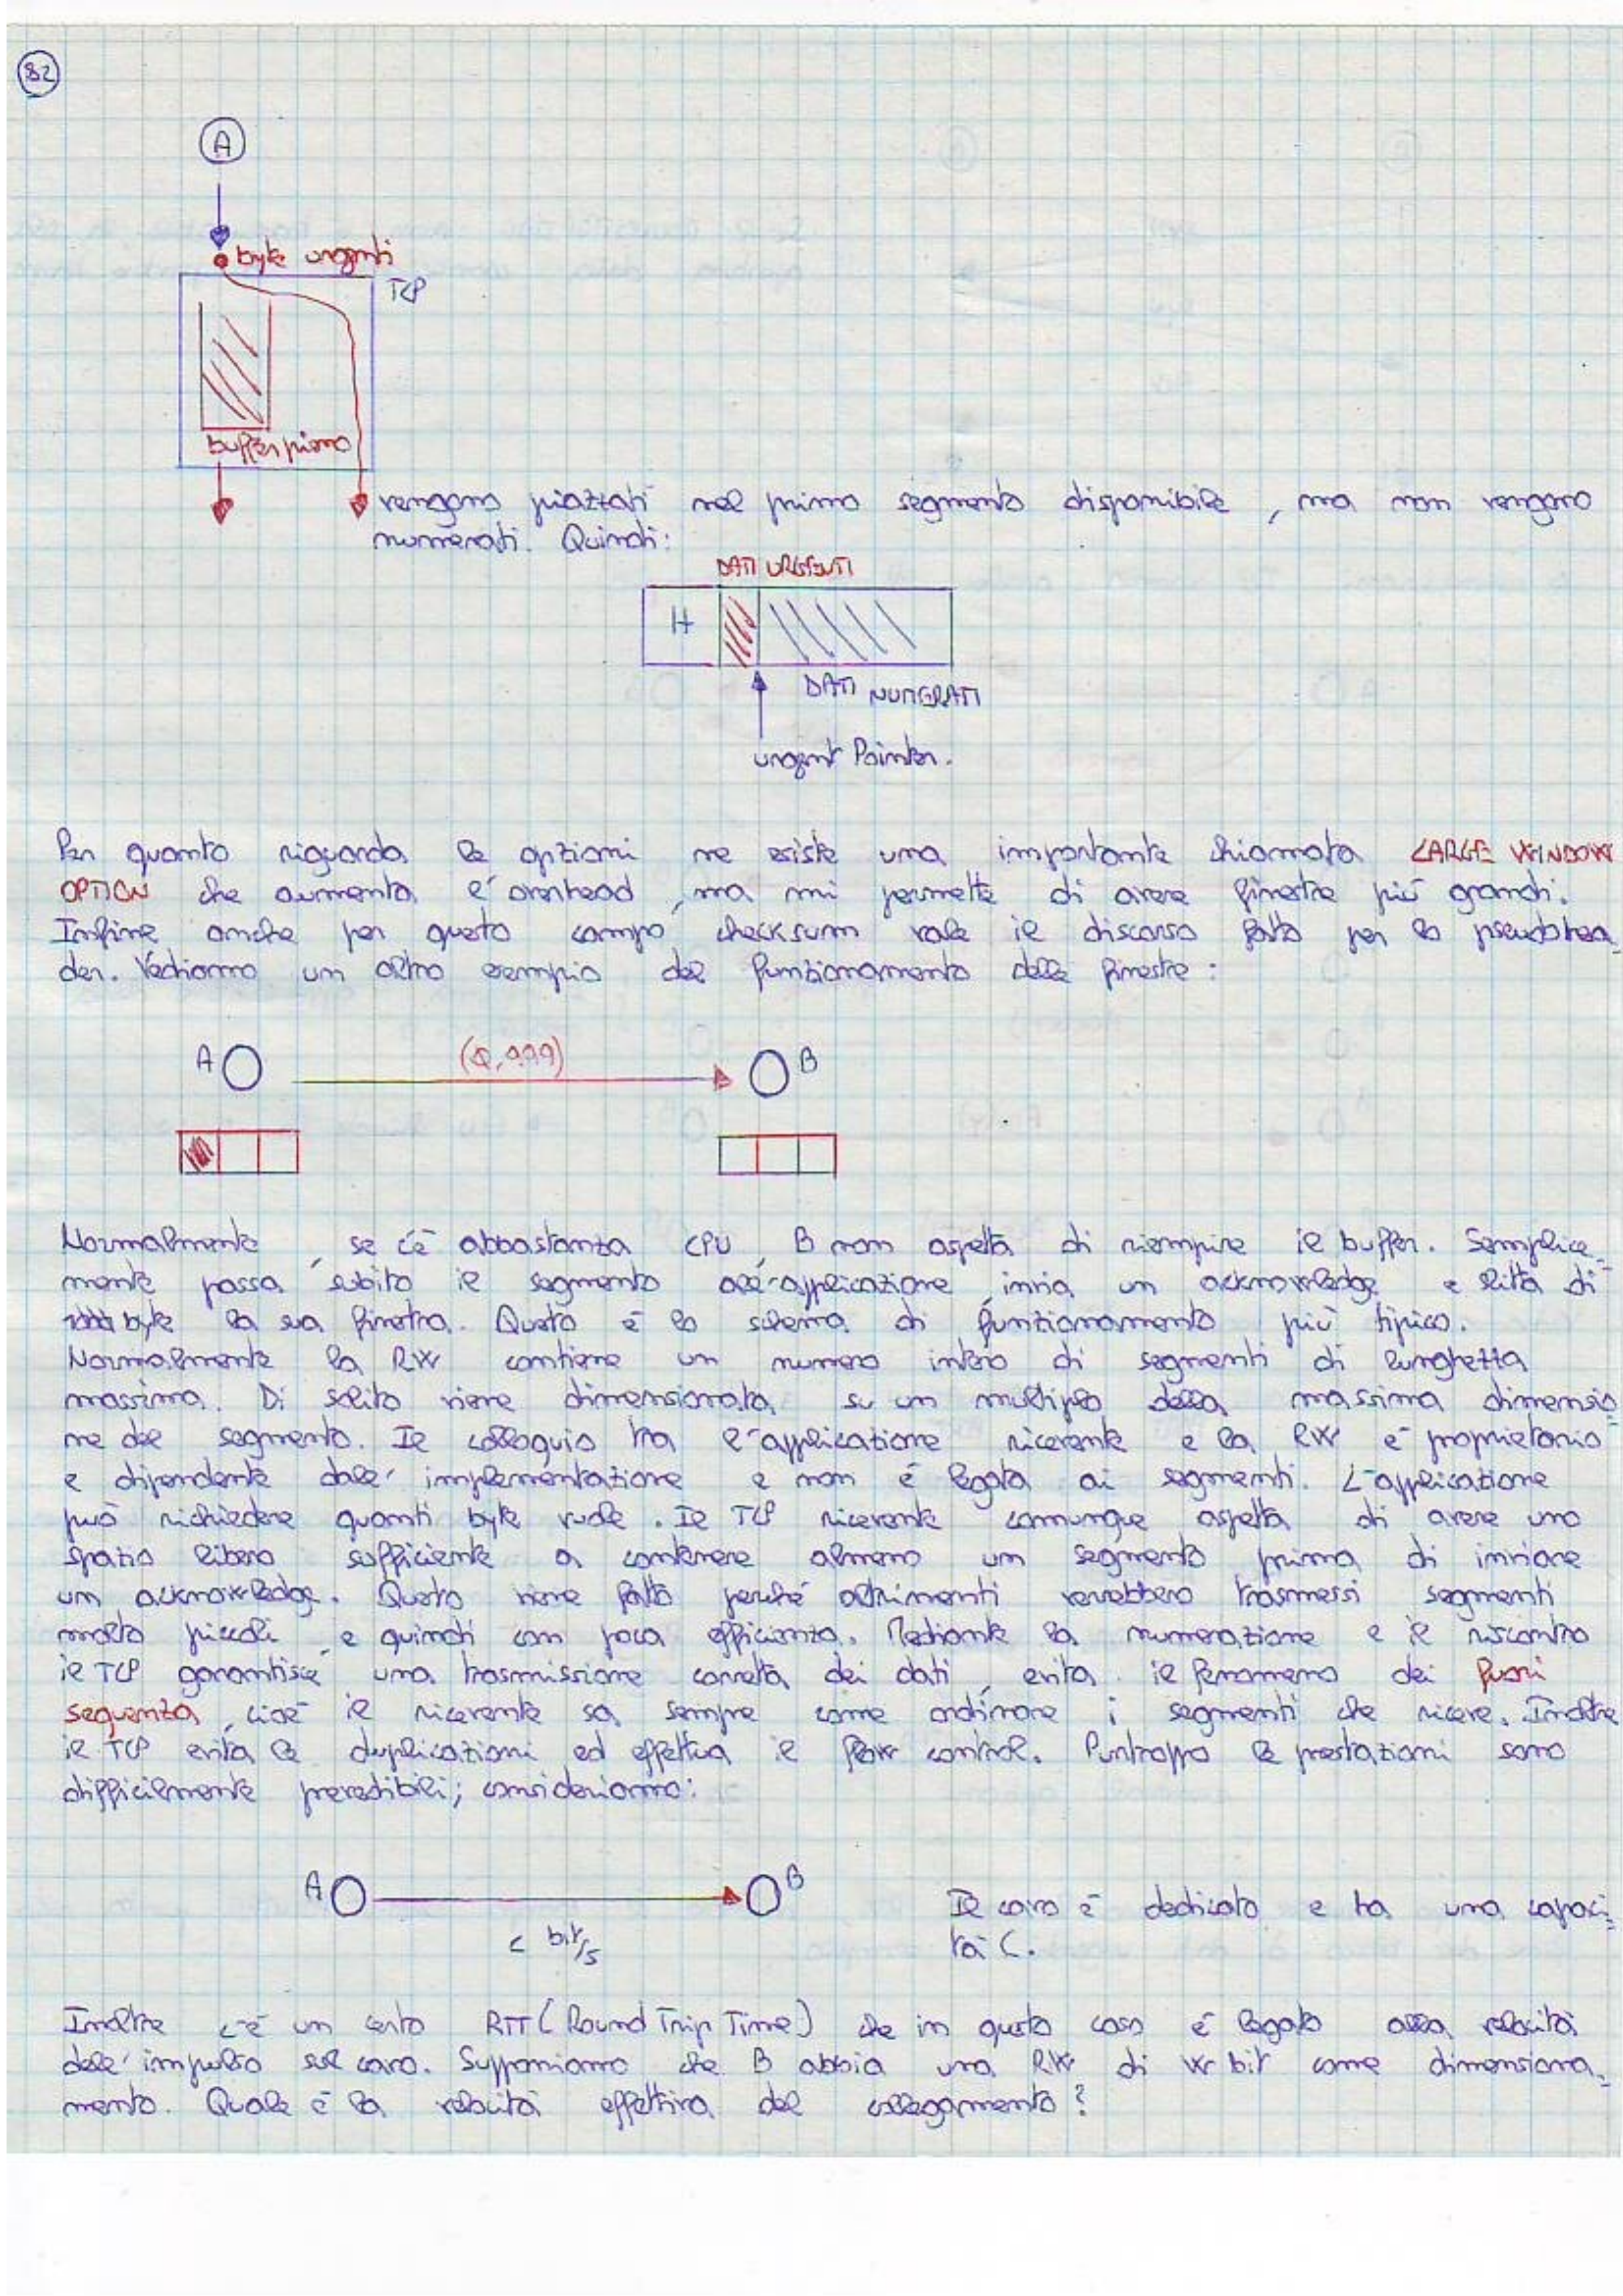 82
A
byte urgenti
TCP
buffer pieno
vengono piazzati nel primo segmento disponibile, ma non vengono
numerati. Quindi:
DATI URGENTI
H
DATI NUMERATI
urgent Pointer.
Per quanto riguarda le opzioni ne esiste una importante chiamata LARGE WINDOW
OPTION che aumenta l'overhead, ma mi permette di avere finestre più grandi.
Infine anche per questo campo checksum vale il discorso fatto per lo pseudohea
der. Vediamo un altro esempio del funzionamento delle finestre:
A (0,999) B
Normalmente, se c'è abbastanza CPU, B non aspetta di riempire il buffer. Semplice-
mente passa subito il segmento all'applicazione, invia un acknowledge e slitta di
1000 byte la sua finestra. Questo è lo schema di funzionamento più tipico.
Normalmente la RW contiene un numero intero di segmenti di lunghezza
massima. Di solito viene dimensionata su un multiplo della massima dimensio-
ne del segmento. Il colloquio tra l'applicazione ricevente e la RW è proprietario
e dipendente dall'implementazione e non è legata ai segmenti. L'applicazione
può richiedere quanti byte vuole. Il TCP ricevente comunque aspetta di avere uno
spazio libero sufficiente a contenere almeno un segmento prima di inviare
un acknowledge. Questo viene fatto perché altrimenti verrebbero trasmessi segmenti
molto piccoli e quindi con poca efficienza. Mediante la numerazione e il riscontro
il TCP garantisce una trasmissione corretta dei dati, evita il fenomeno dei fuori
sequenza, cioè il ricevente sa sempre come ordinare i segmenti che riceve. Inoltre
il TCP evita le duplicazioni ed effettua il flow control. Purtroppo le prestazioni sono
difficilmente prevedibili; consideriamo:
A B
C bit/s
Il cavo è dedicato e ha una capaci-
tà C.
Inoltre c'è un certo RTT (Round Trip Time) che in questo caso è legato alla velocità
dell'impulso sul cavo. Supponiamo che B abbia una RW di W bit come dimensiona-
mento. Quale è la velocità effettiva del collegamento?